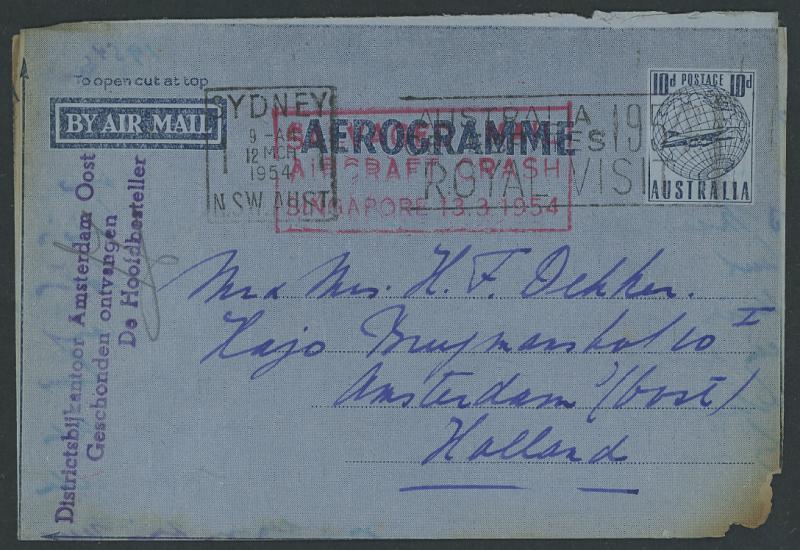 To open cut at top
BY AIR MAIL
SYDNEY
9 - A
12 MCH
1954
N.S.W. AUST
AEROGRAMME
AUSTRALIA
ES 19
ROYAL VISI
SALVAGED MAIL
AIRCRAFT CRASH
SINGAPORE 13.3.1954
10d POSTAGE 10d
AUSTRALIA
Districtsbijkantoor Amsterdam Oost
Geschonden ontvangen
De Hoofdbesteller
Mr & Mrs. H. F. Dekker.
Hajo 10 I
Amsterdam (Oost)
Holland